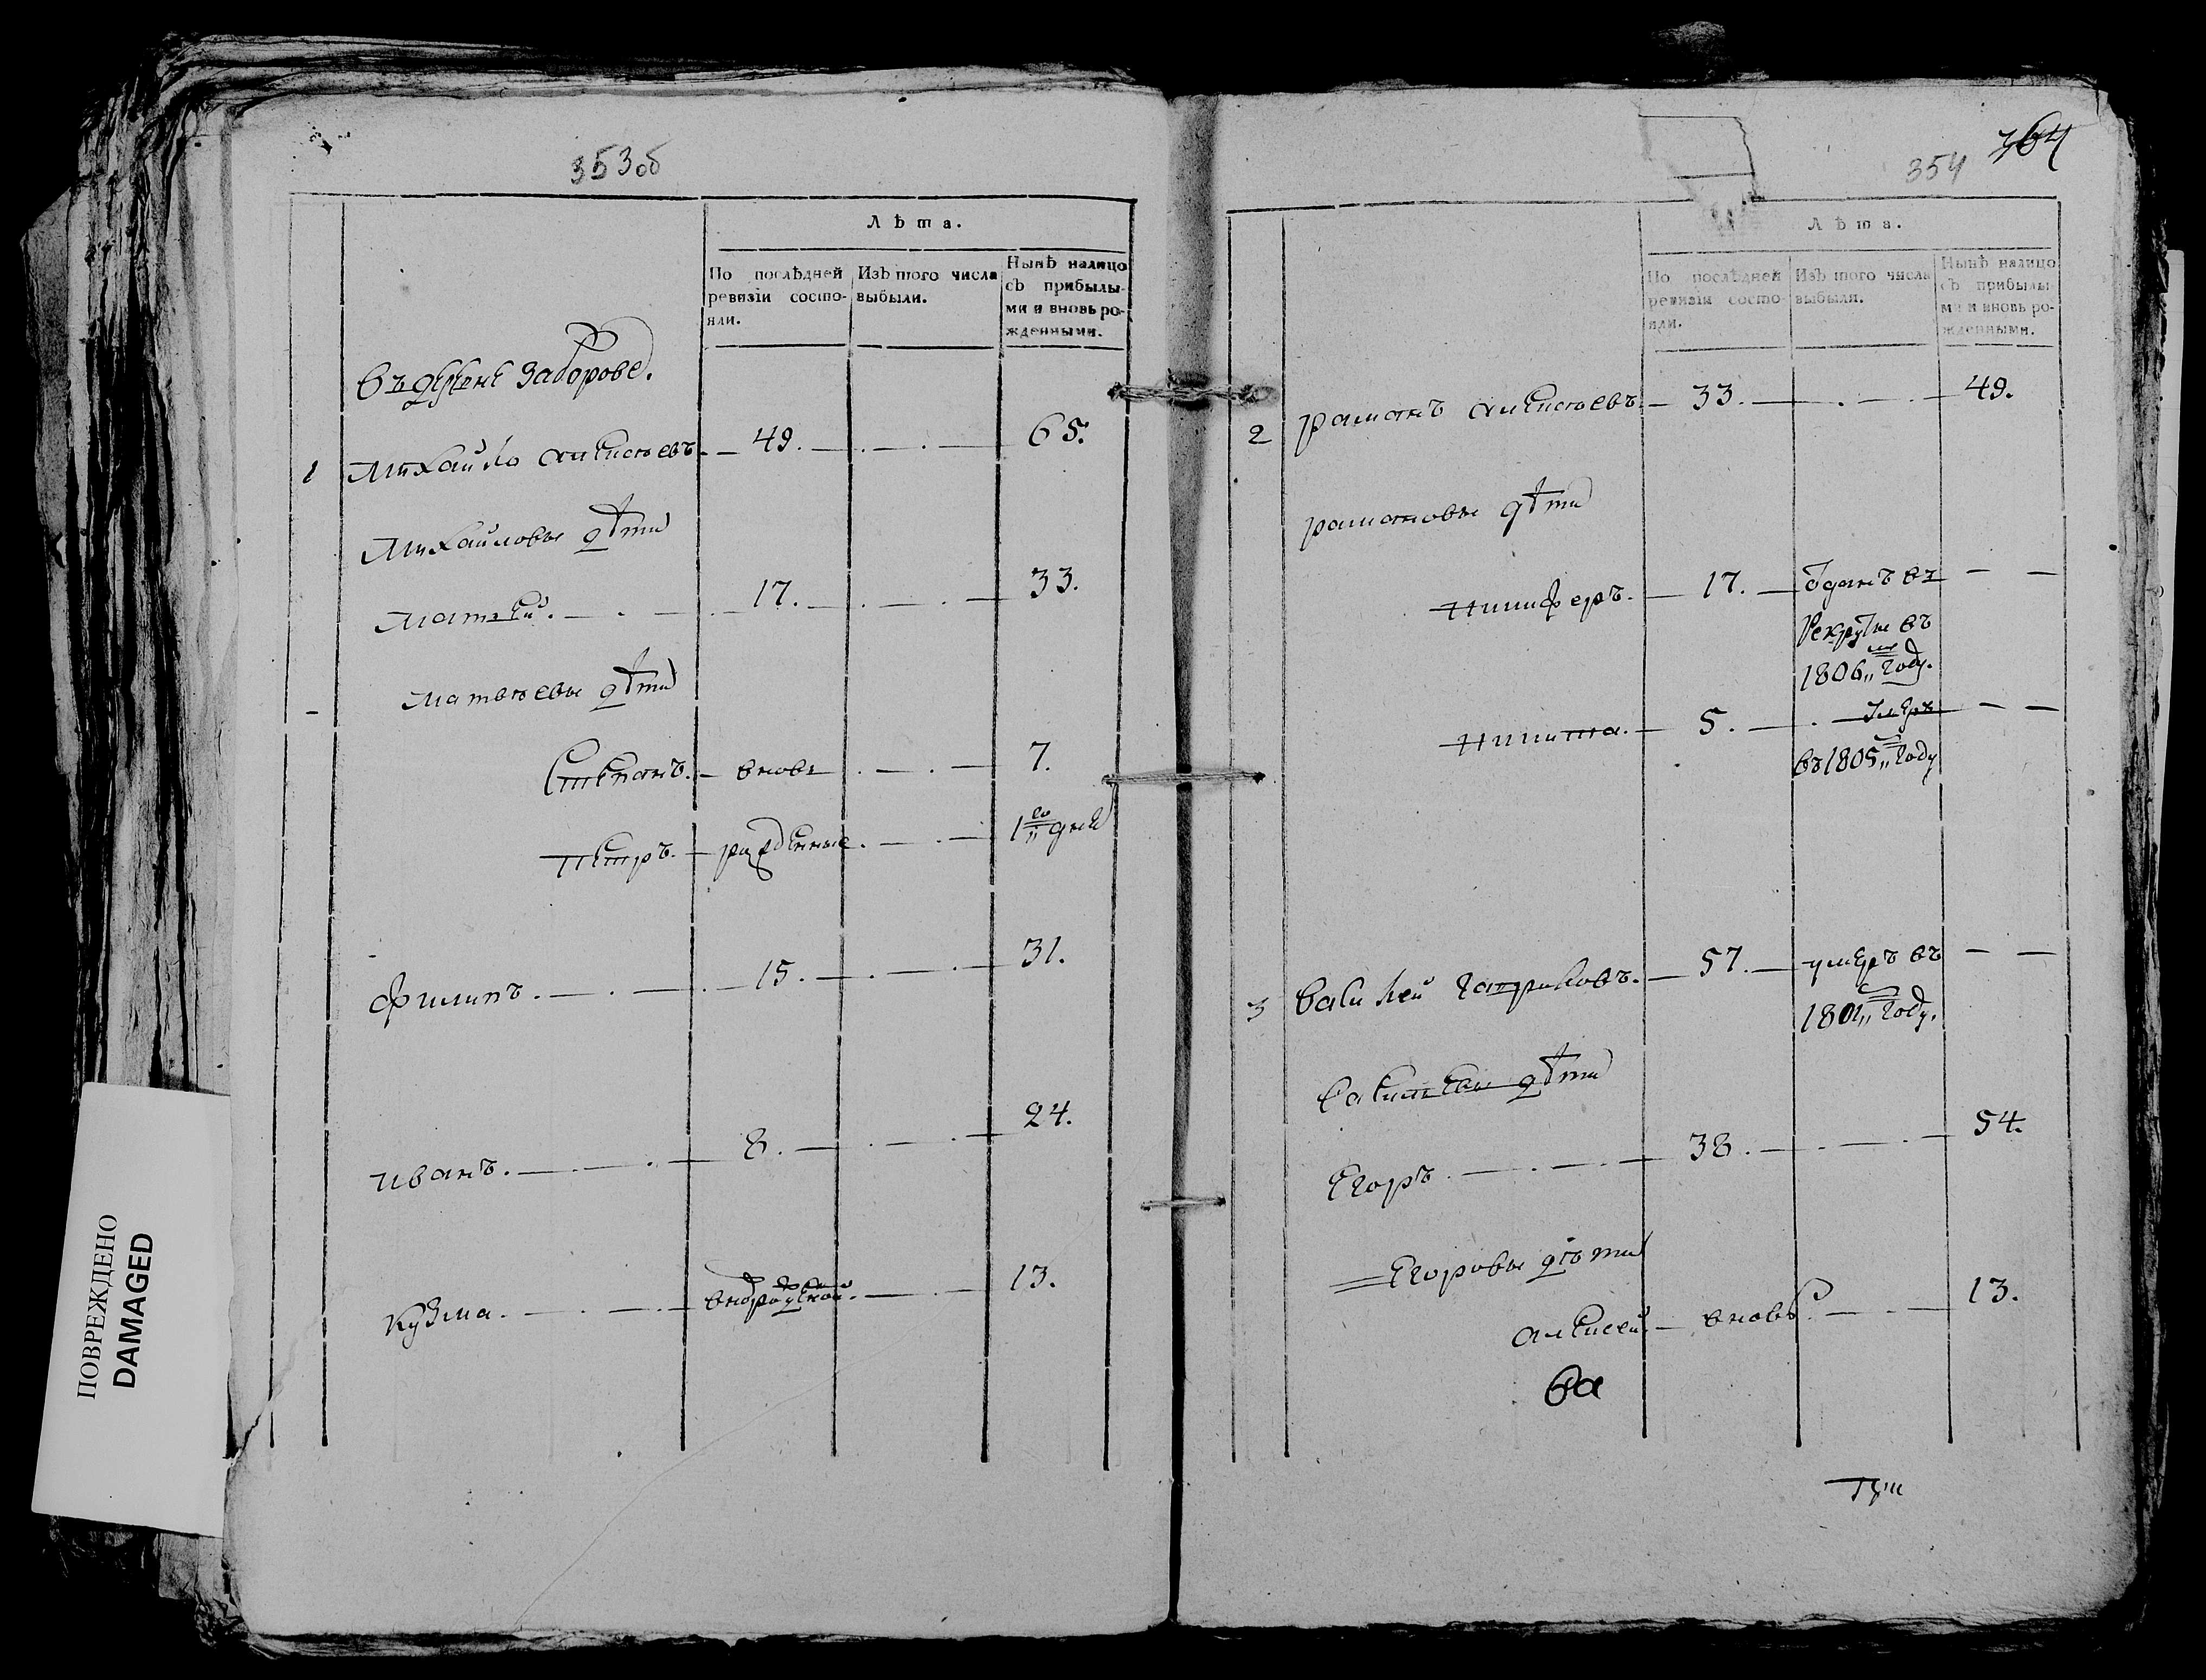 353об
Лѣта.
По послѣдней ревизіи состояли.
Изъ того числа выбыли.
Нынѣ налицо съ прибылыми и вновь рожденными.
Въ деревне Заборове.
1 Михайло Алексѣевъ. 49. 65.
Михайловы дѣти
Матвей. 17. 33.
Матвѣевы дѣти
Степанъ. вновь 7.
Петръ. рожденные 1 дней
Филипъ. 15. 31.
Иванъ. 8. 24.
Кузма. 13.
ПОВРЕЖДЕНО
DAMAGED
354 364
Лѣта.
По послѣдней ревизіи состояли.
Изъ того числа выбыли.
Нынѣ налицо съ прибылыми и вновь рожденными.
2 Раманъ Алексѣевъ 33. 49.
Рамановы дѣти
Никиферъ. 17. Отданъ въ
Рекруты въ
1806 году.
Никита. 5. Умеръ
въ 1805 году
3 Василей 57. умеръ въ
1801 году.
Васильевы дѣти
Егоръ 38. 54.
Егоровы дѣти
Алексей. вновь 13.